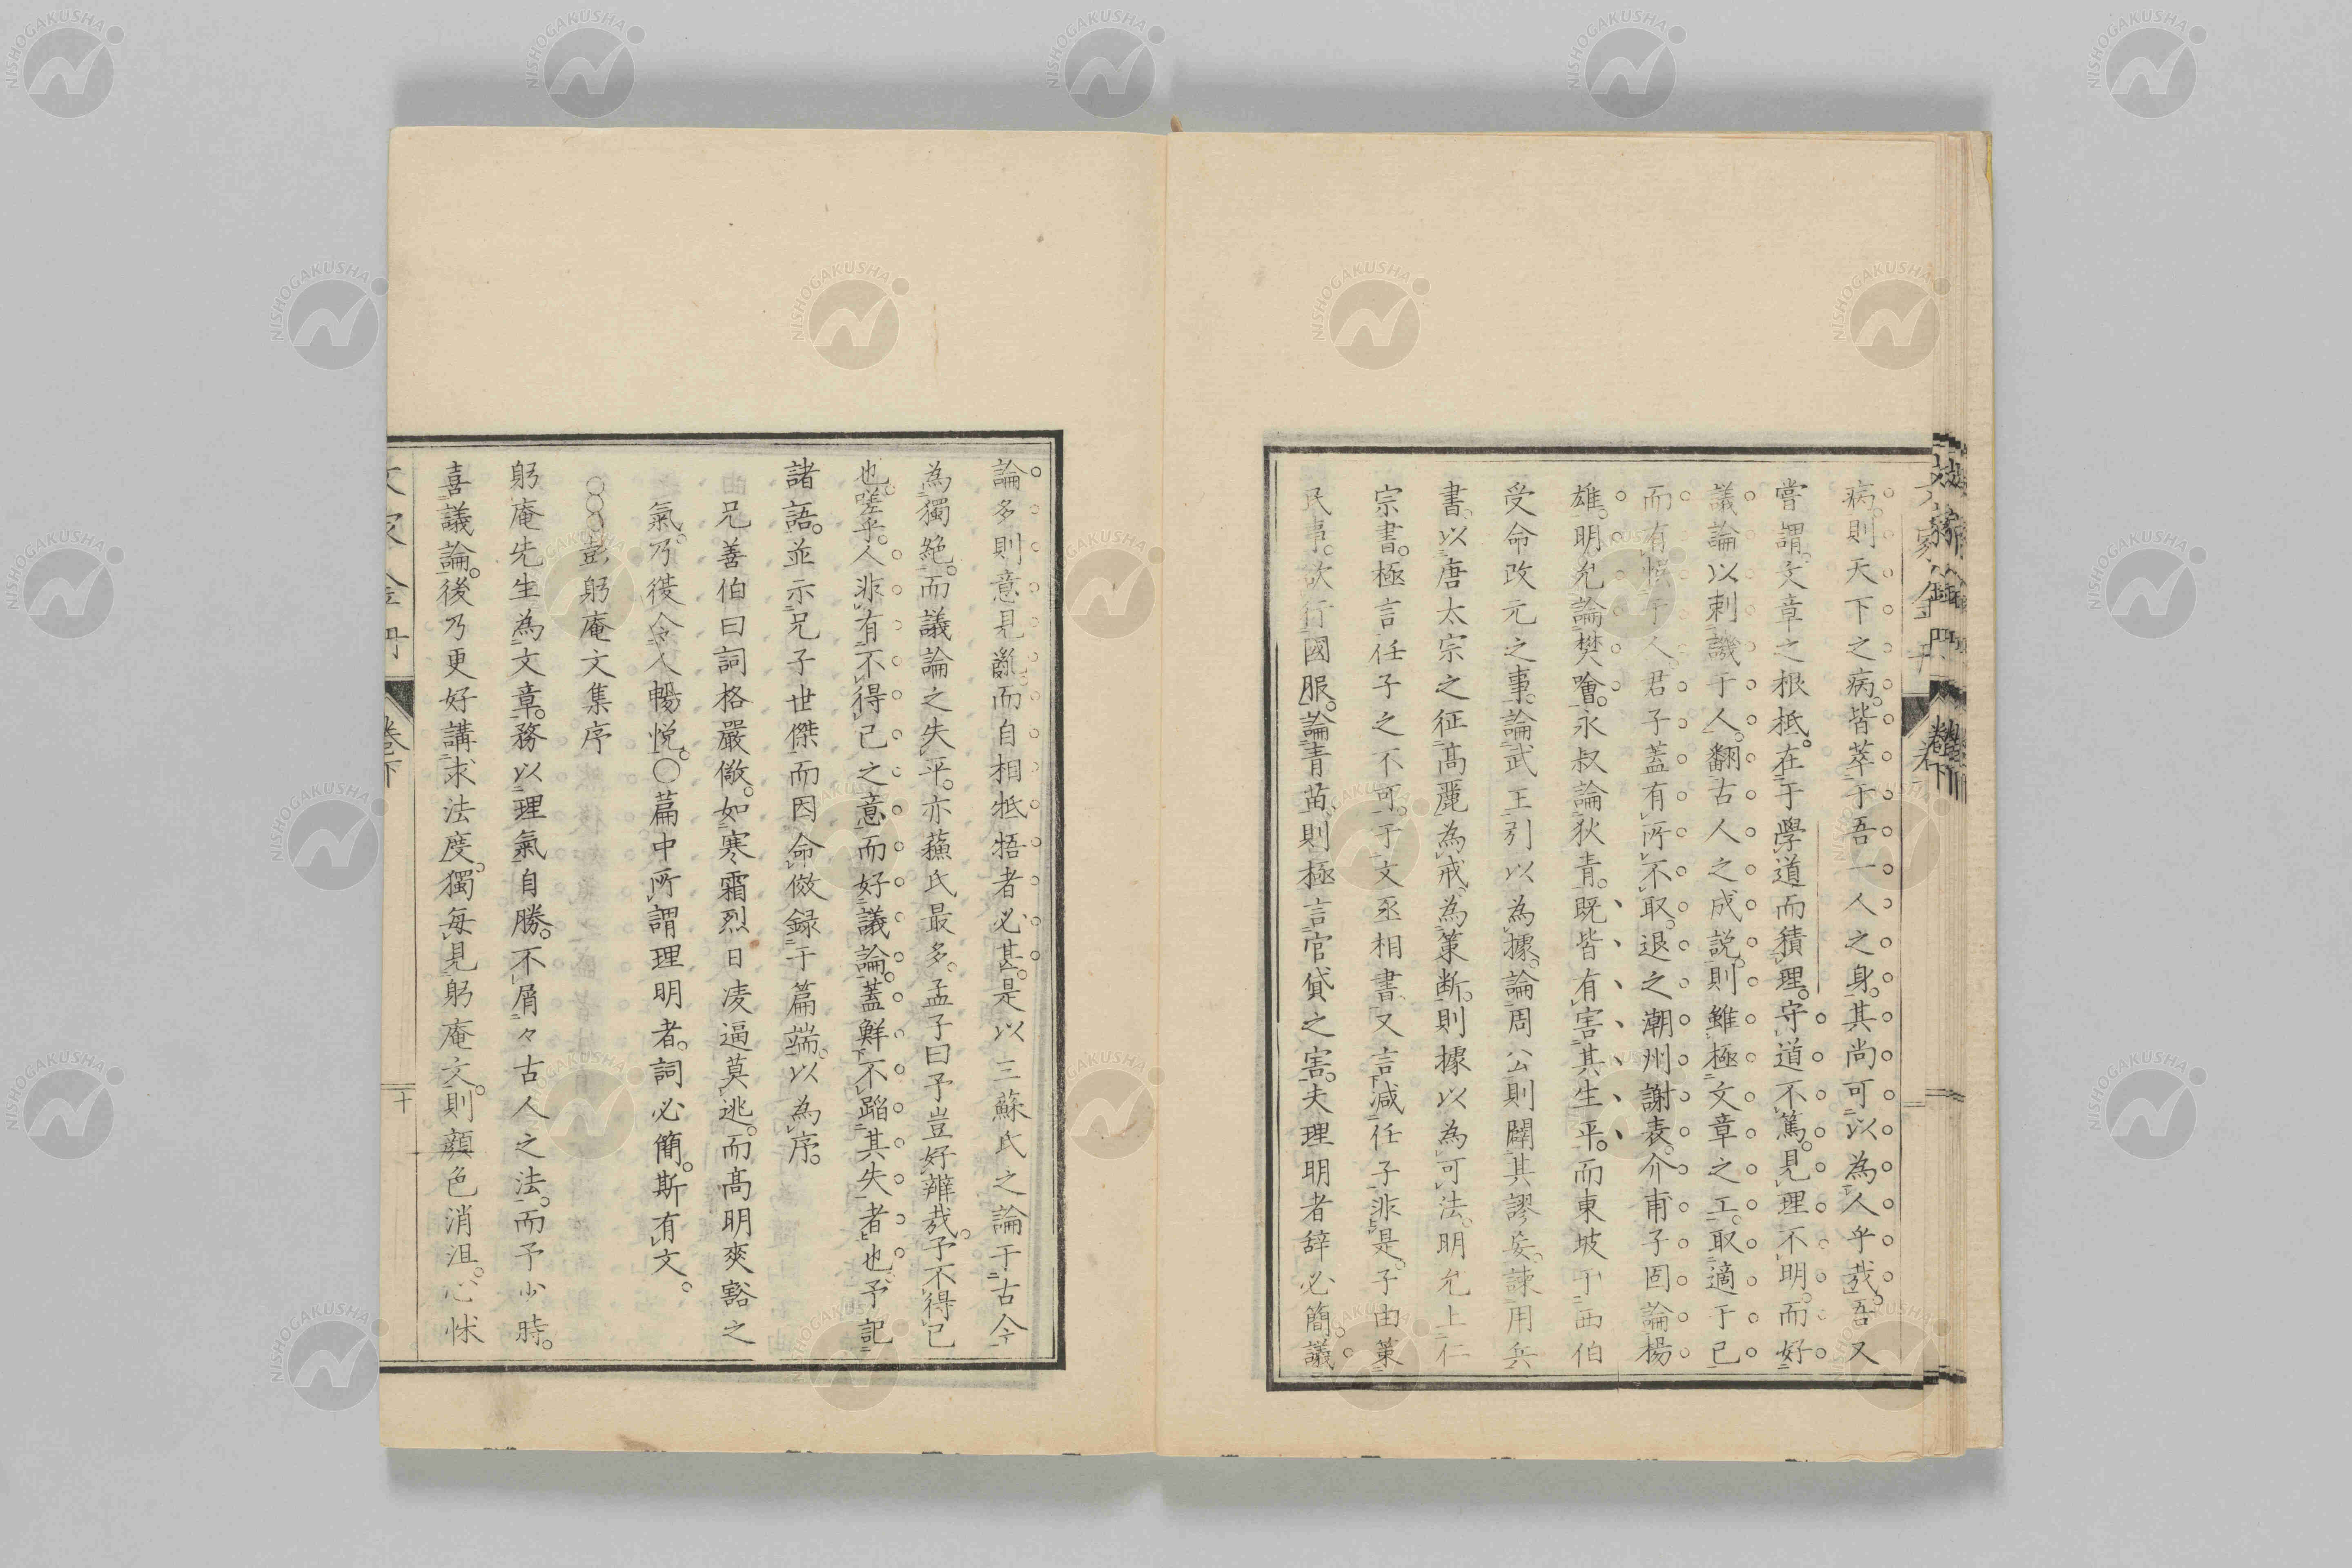 病。則天下之病。皆萃于吾一人之身。其尚可以為人乎哉。吾又
嘗謂。文章之根柢。在于學道而積理。守道不篤。見理不明。而好
議論以刺譏于人。翻古人之成說。則雖極文章之工。取適于己
而有恨于人。君子蓋有所不取。退之潮州謝表。介甫子固論楊
雄。明允論樊噲。永叔論狄青。既皆有害其生平。而東坡于西伯
受命改元之事。論武王引以為據。論周公則闢其謬妄。諫用兵
書。以唐太宗之征髙麗為戒。為策斷。則據以為可法。明允上仁
宗書。極言任子之不可。于文丞相書。又言減任子非是。子由策
民事。欲行國服。論青苗。則極言官貸之害。夫理明者辞必簡。議
論多則意見亂而自相牴牾者必甚。是以三蘇氏之論于古今
為獨絶。而議論之失平。亦蘓氏最多。孟子曰予豈好辨哉。予不得已
也。嗟乎。人非有不得已之意而好議論。蓋鮮不蹈其失者也。予記
諸語。並示兄子世傑而因命倣録于篇端。以為序。
兄善伯曰詞格嚴儆。如寒霜烈日凌逼莫逃。而髙明爽豁之
氣。乃後令人暢悅。〇篇中所謂理明者。詞必簡。斯有文。
〇〇〇彭躬庵文集序
躬庵先生為文章。務以理氣自勝。不屑々古人之法。而予少時。
喜議論。後乃更好講求法度。獨每見躬庵文。則顔色消沮。心怵
文家金丹
卷下
十
NISHOGAKUSHA